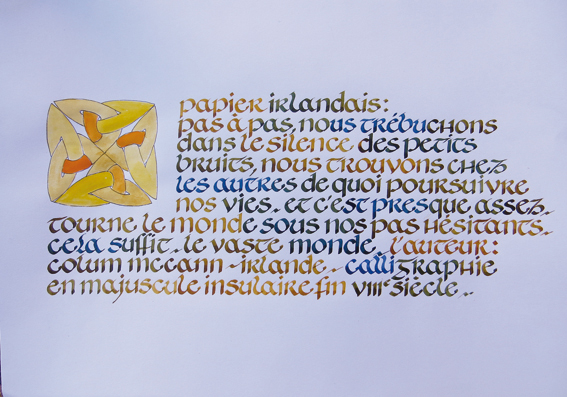 papier irlandais:
pas à pas, nous trébuchons
dans le silence des petits
bruits, nous trouvons chez
les autres de quoi poursuivre
nos vies. et c'est presque assez.
tourne le monde sous nos pas hésitants.
cela suffit. le vaste monde. l'auteur:
colum mccann - irlande. calligraphie
en majuscule insulaire fin VIIIe siècle..